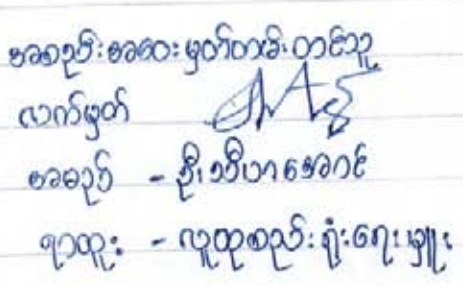 အစည်းအဝေးမှတ်တမ်းတင်သူ
လက်မှတ်
အမည် - ဦးသီဟအောင်
ရာထူး - လူထုစည်းရုံးရေးမှူး